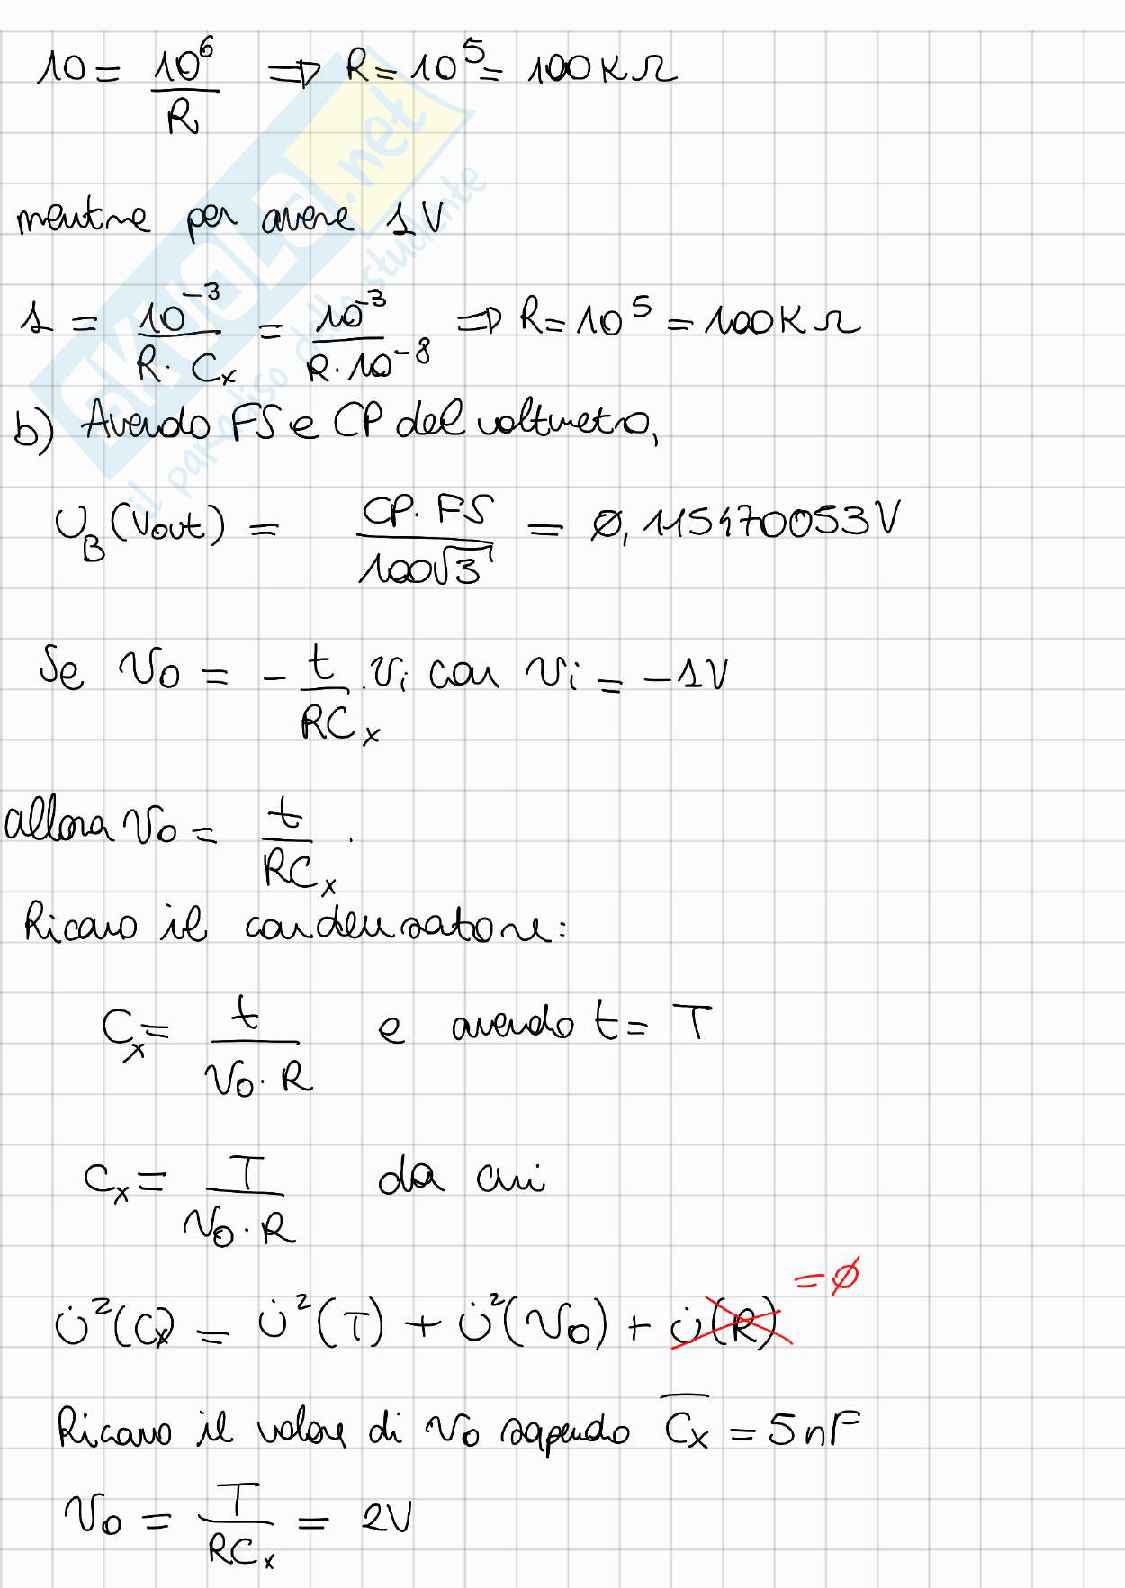 10 = 10⁶/R ⇒ R = 10⁵ = 100KΩ
mentre per avere 1V
1 = 10⁻³/(R·Cx) = 10⁻³/(R·10⁻⁸) ⇒ R = 10⁵ = 100KΩ
b) Avendo FS e CP del voltmetro,
U_B(Vout) = CP·FS/(100√3) = 0,115470053V
Se Vo = -t/(RCx)·Vi con Vi = -1V
allora Vo = t/(RCx).
Ricavo il condensatore:
Cx = t/(Vo·R) e avendo t = T
Cx = T/(Vo·R) da cui
U̇²(Cx) = U̇²(T) + U̇²(Vo) + U̇(R) = 0
Ricavo il valore di Vo sapendo C̅x̅ = 5nF
Vo = T/(RCx) = 2V
SKUOLA.net
il paradiso dello studente